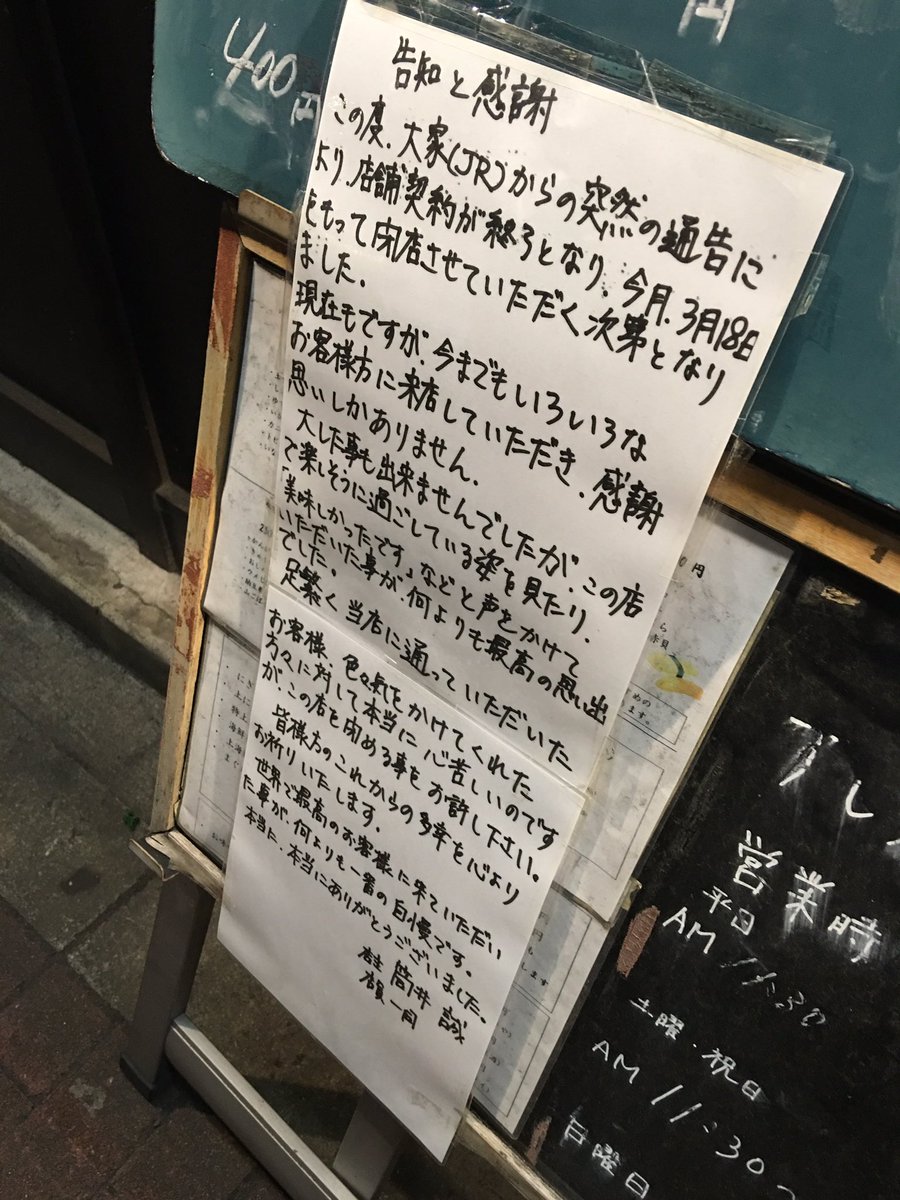 400円
円
告知と感謝
この度、大家(JR)からの突然の通告に
より、店舗契約が終了となり、今月、3月18日
をもって閉店させていただく次第となり
ました。
現在もですが、今までもいろいろな
お客様方に来店していただき、感謝
思いしかありません。
大した事も出来ませんでしたが、この店
で楽しそうに過ごしている姿を見たり、
「美味しかったです」などと声をかけて
いただいた事が、何よりも最高の思い出
でした。
足繁く当店に通っていただいた
お客様、色々気をかけてくれた
方々に対して本当に心苦しいのです
が、この店を閉める事をお許し下さい。
皆様方のこれからの多幸を心より
お祈りいたします。
世界で最高のお客様に来ていただい
た事が、何よりも一番の自慢です。
本当に、本当にありがとうございました。
店主 筒井 誠
店員一同
営業時
平日
AM 11:30
土曜・祝日
AM 11:30
日曜日